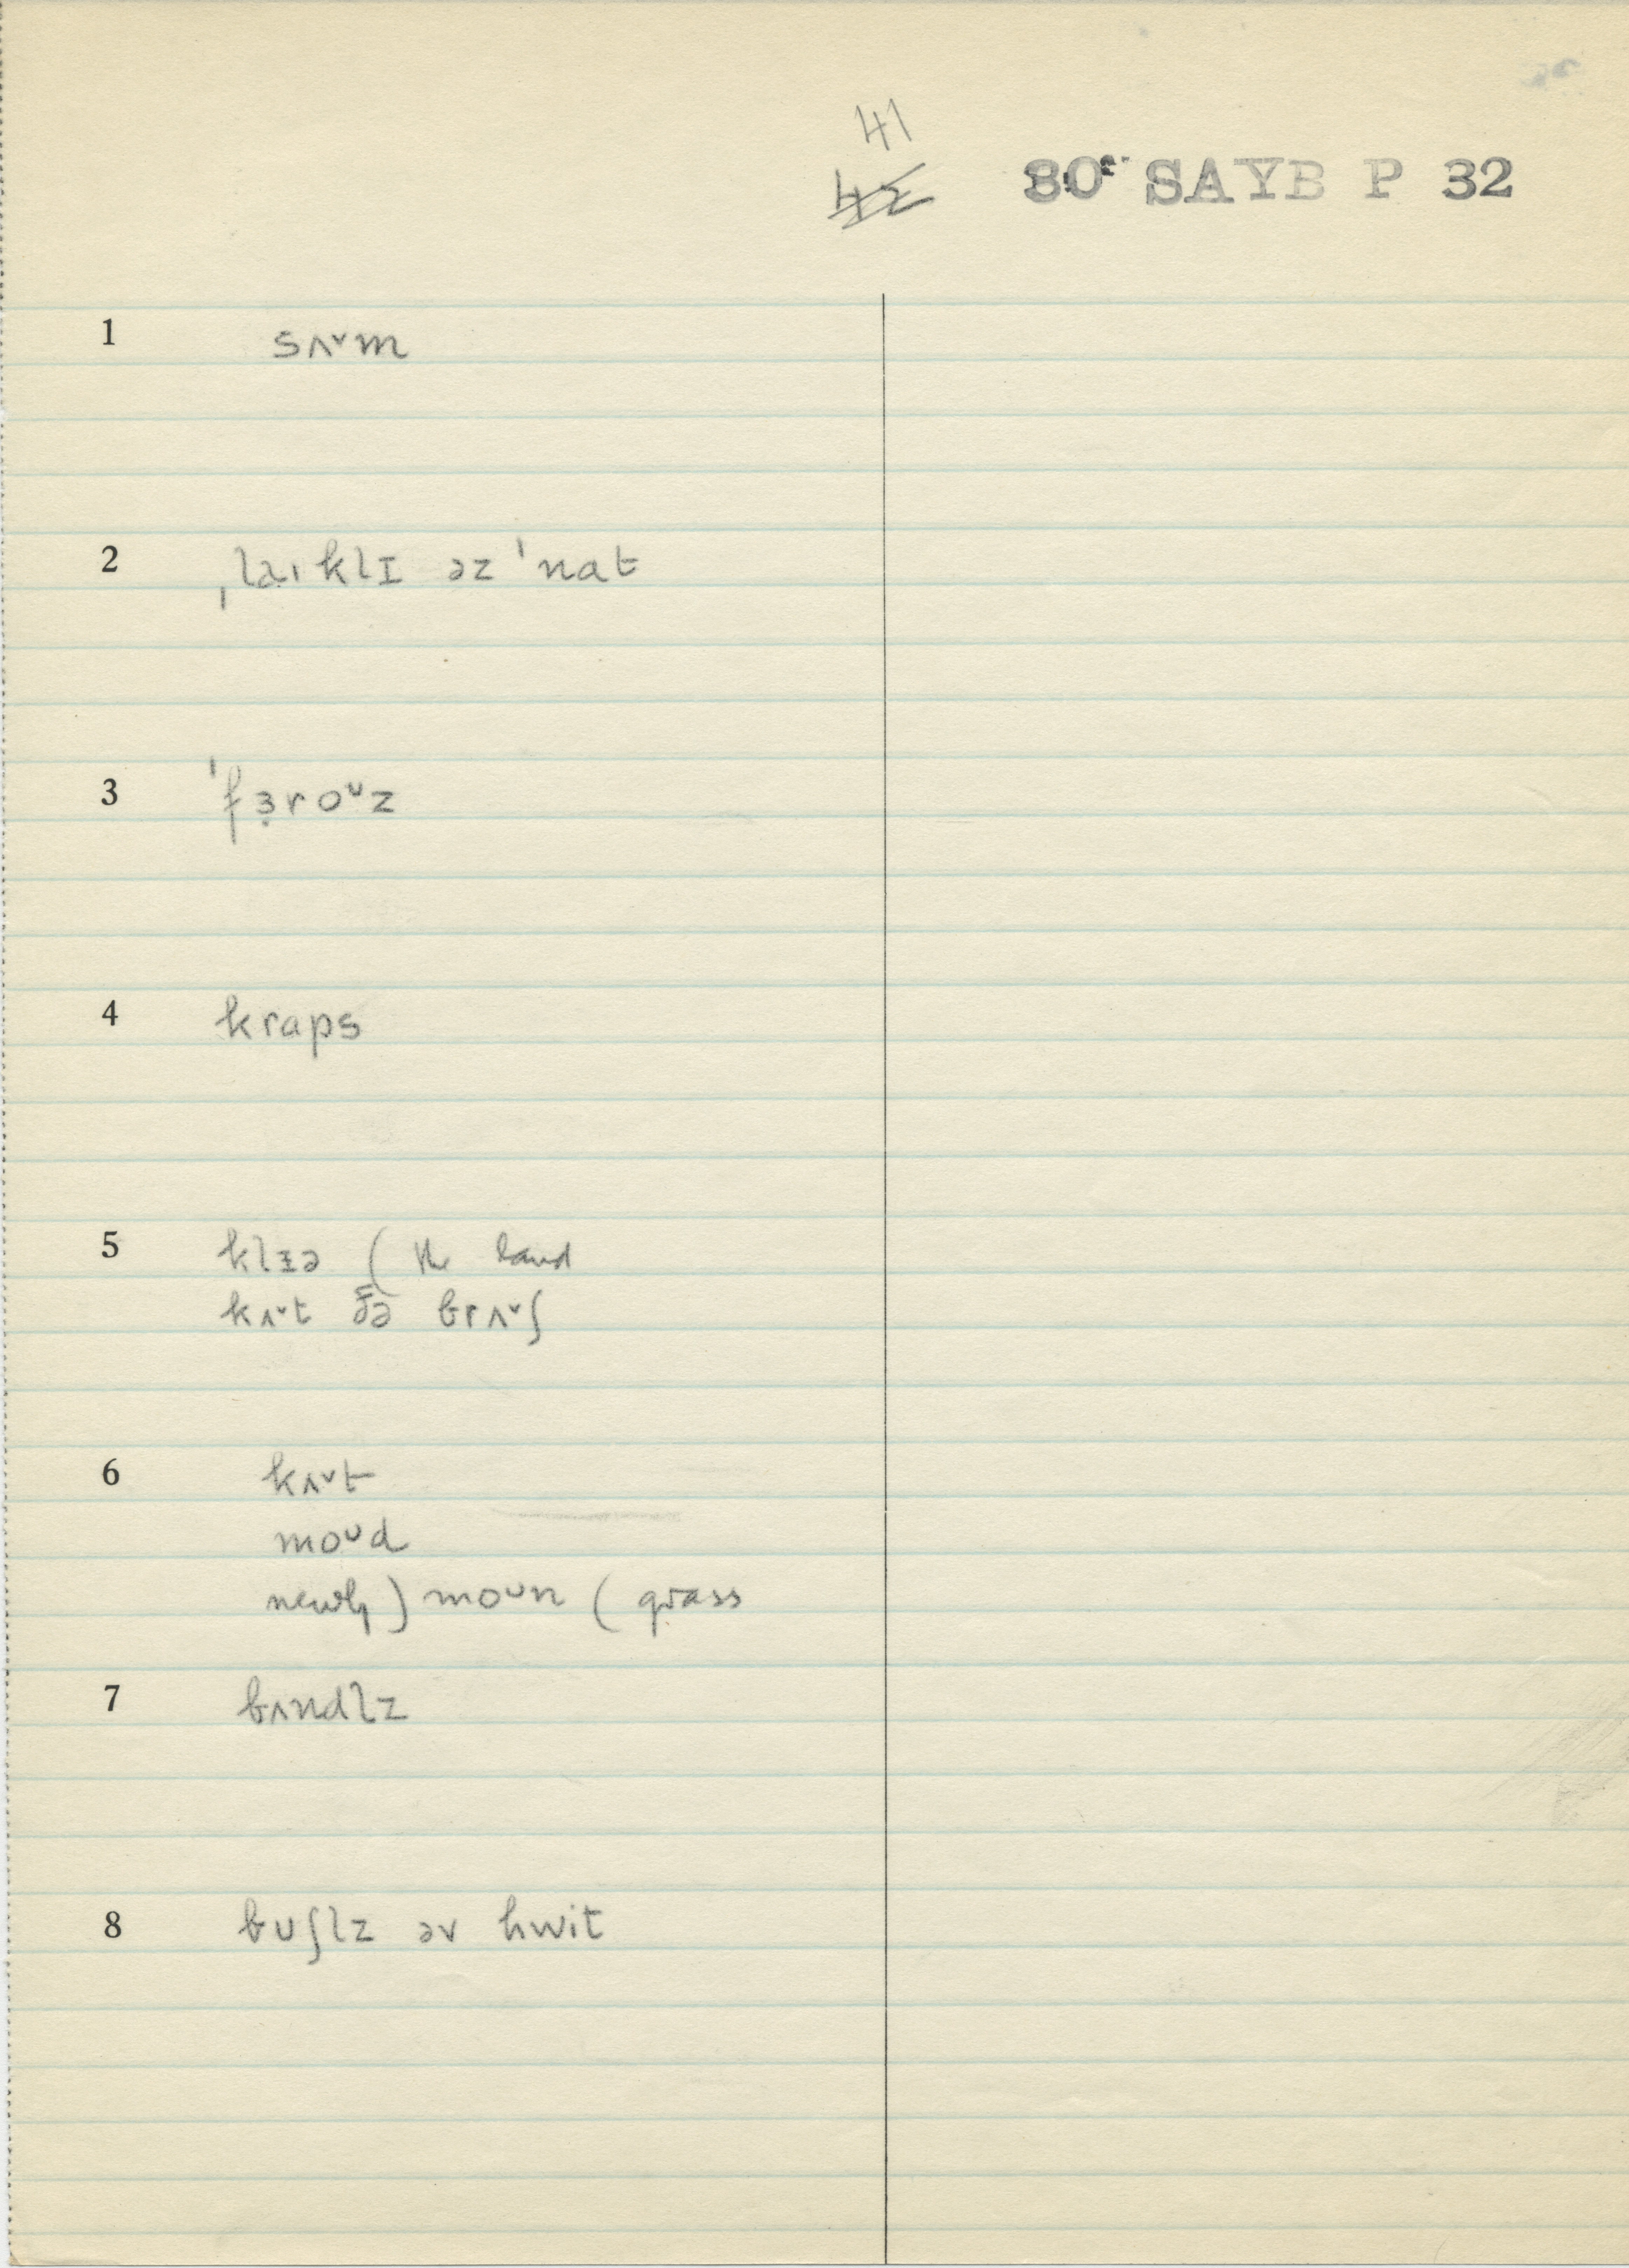 41
42 80 SAYB P 32
1 sʌ˅m
2 ˌlaɪklɪ əz ˈnat
3 ˈfɜ̣roᴜz
4 kraps
5 klɪə ( the land
kʌ˅t ðə brʌ˅ʃ
6 kʌ˅t
moᴜd
newly ) moᴜn ( grass
7 bʌndlz
8 bᴜʃlz əv hwit